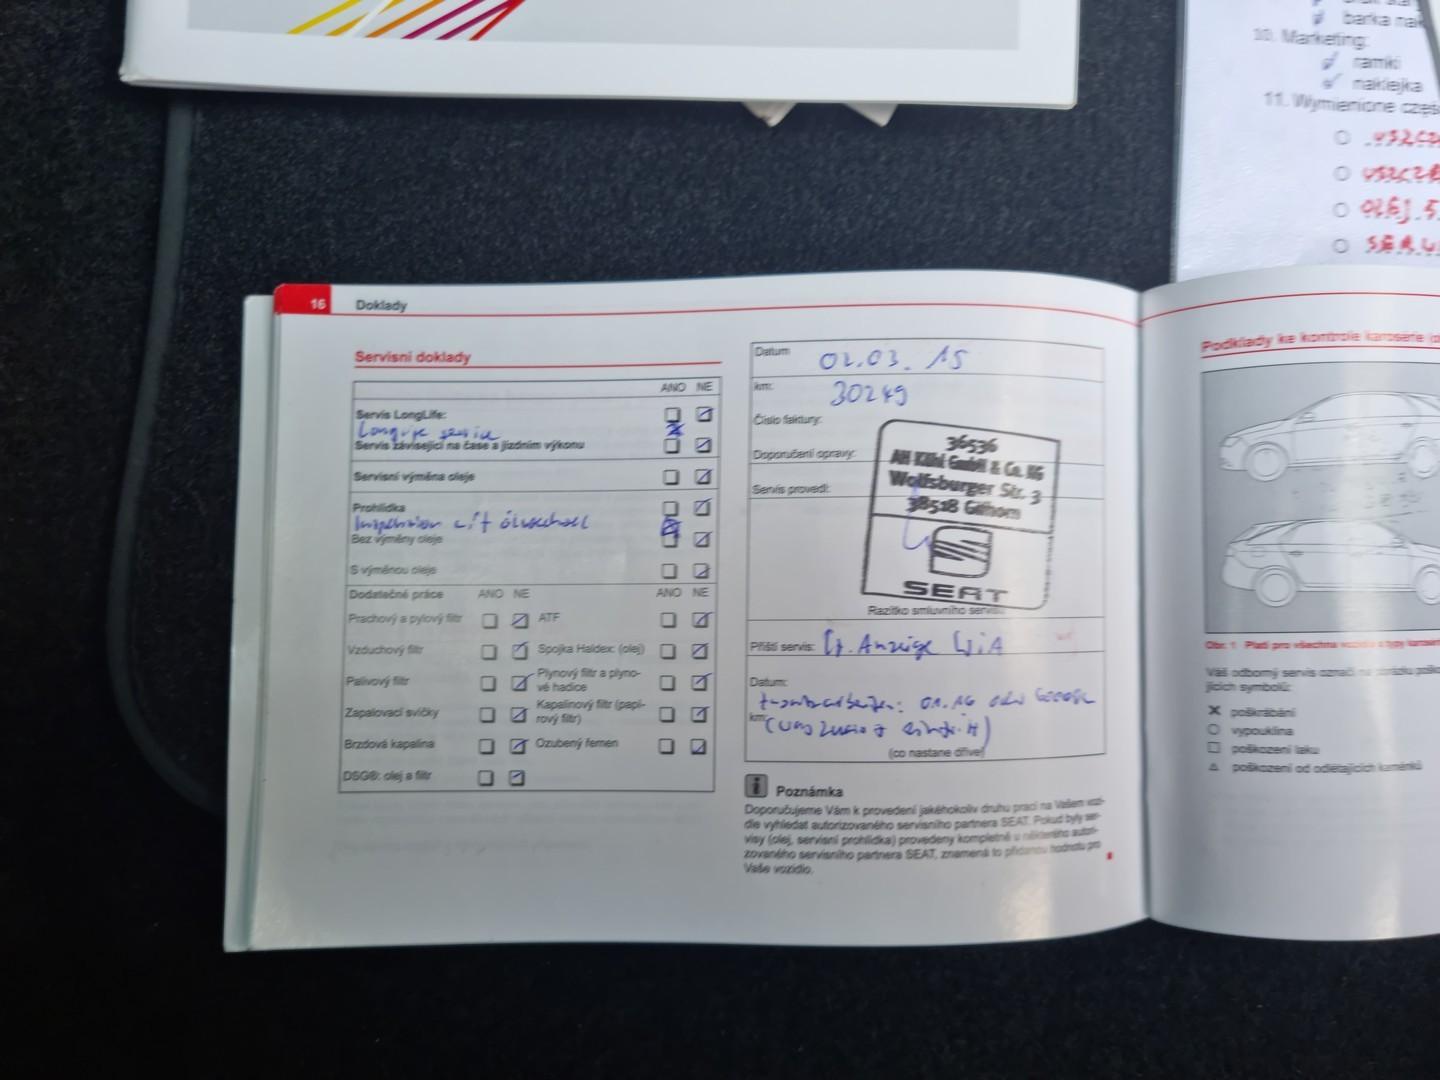 barka
10. Marketing:
ramki
naklejka
11. Wymienione
16 Doklady
Servisní doklady
ANO NE
Servis LongLife:
Longlife service
Servis závisející na čase a jízdním výkonu
Servisní výměna oleje
Prohlídka
Inspektion
Bez výměny oleje
S výměnou oleje
Dodatečné práce ANO NE ANO NE
Prachový a pylový filtr ATF
Vzduchový filtr Spojka Haldex: (olej)
Palivový filtr Plynový filtr a plyno-
vé hadice
Zapalovací svíčky Kapalinový filtr (papí-
rový filtr)
Brzdová kapalina Ozubený řemen
DSG®: olej a filtr
Datum 02.03.15
km: 30249
Číslo faktury:
Doporučení opravy:
Servis provedl:
36536
AH Kühl GmbH & Co. KG
Wolfsburger Str. 3
38518 Gifhorn
SEAT
Razítko smluvního servisu
Příští servis: lt. Anzeige
Datum:
01.16
km:
(co nastane dříve)
Poznámka
Doporučujeme Vám k provedení jakéhokoliv druhu prací na Vašem vozi-
dle vyhledat autorizovaného servisního partnera SEAT. Pokud byly ser-
visy (olej, servisní prohlídka) provedeny kompletně u některého autori-
zovaného servisního partnera SEAT, znamená to přidanou hodnotu pro
Vaše vozidlo.
Podklady ke kontrole karosérie
Obr. 1 Platí pro všechna vozidla a typy
Váš odborný servis označí na obrázku
jících symbolů:
poškrábání
vypouklina
poškození laku
poškození od odlétajících kamínků